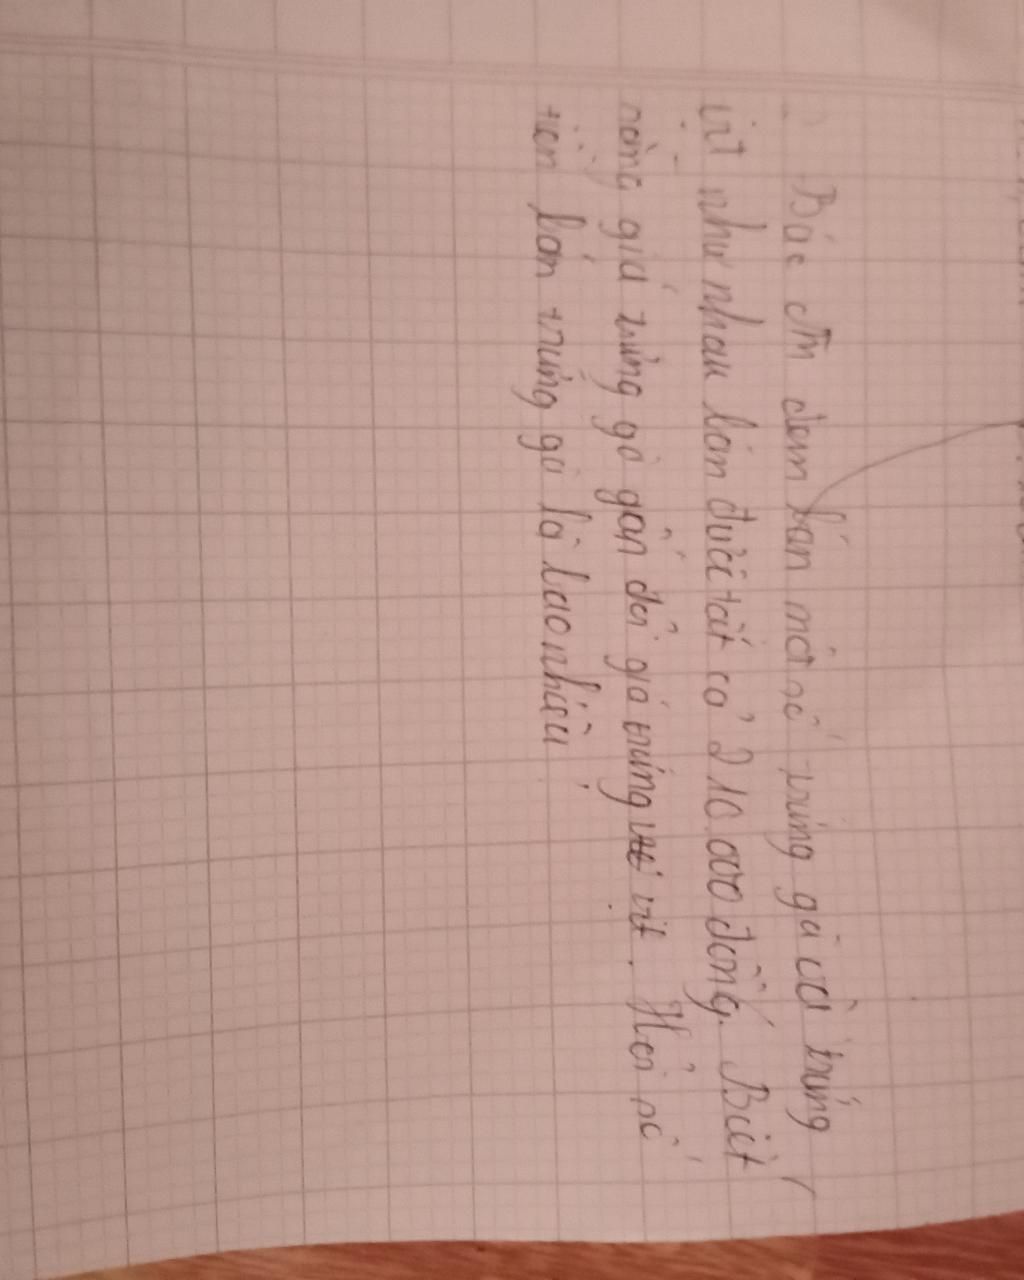 Bác An đem bán một số trứng gà và trứng
vịt như nhau bán được tất cả 210.000 đồng. Biết
rằng giá trứng gà gấn đôi giá trứng vịt. Hỏi số
tiền bán trứng gà là bao nhiêu